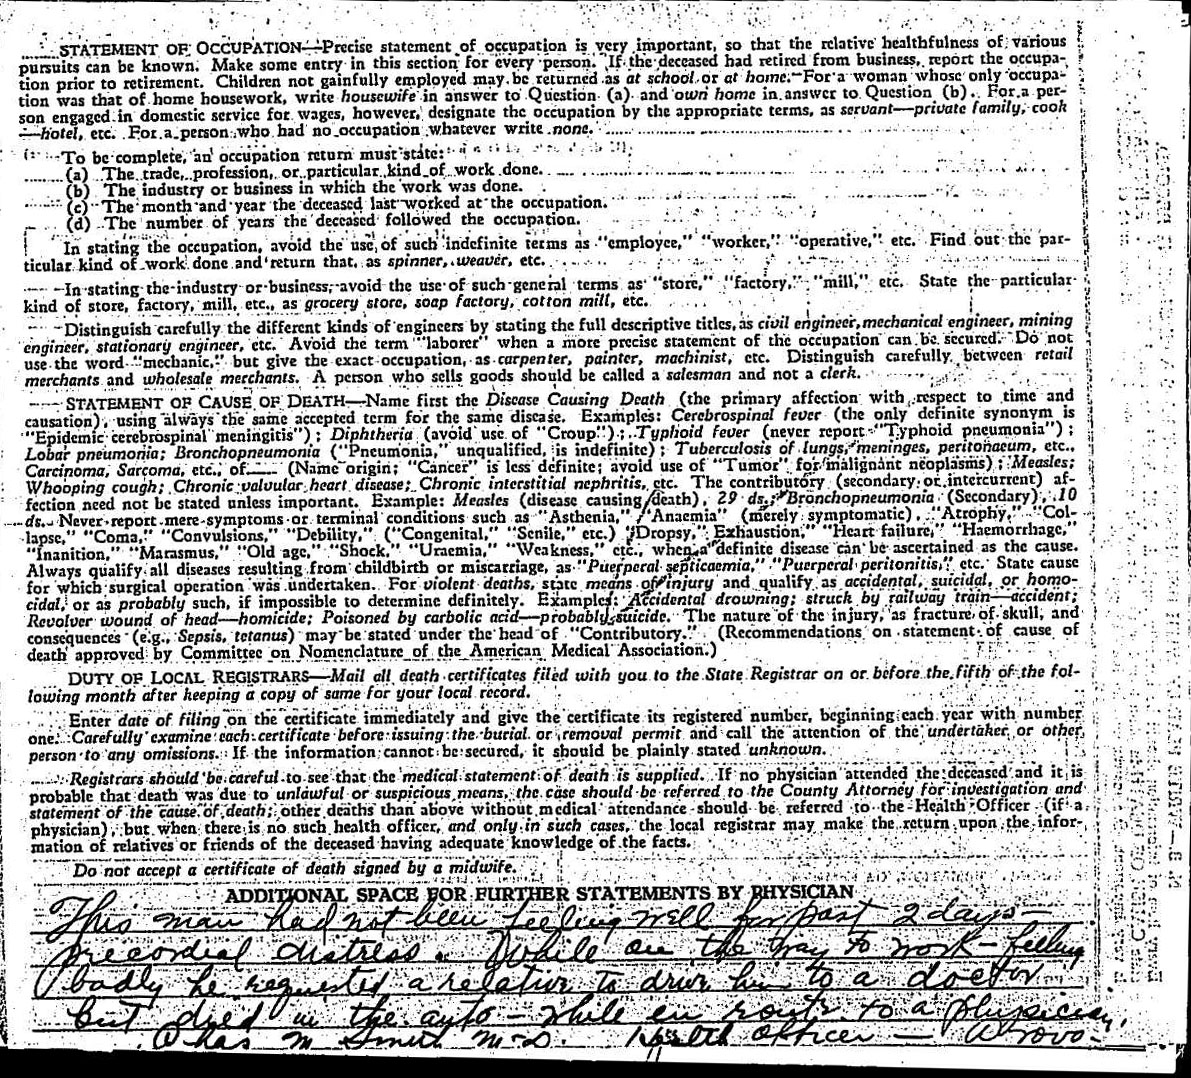 STATEMENT OF OCCUPATION—Precise statement of occupation is very important, so that the relative healthfulness of various
pursuits can be known. Make some entry in this section for every person. If the deceased had retired from business, report the occupa-
tion prior to retirement. Children not gainfully employed may be returned as at school or at home. For a woman whose only occupa-
tion was that of home housework, write housewife in answer to Question (a) and own home in answer to Question (b). For a per-
son engaged in domestic service for wages, however, designate the occupation by the appropriate terms, as servant—private family, cook
—hotel, etc. For a person who had no occupation whatever write none.
To be complete, an occupation return must state:
(a) The trade, profession, or particular kind of work done.
(b) The industry or business in which the work was done.
(c) The month and year the deceased last worked at the occupation.
(d) The number of years the deceased followed the occupation.
In stating the occupation, avoid the use of such indefinite terms as "employee," "worker," "operative," etc. Find out the par-
ticular kind of work done and return that, as spinner, weaver, etc.
In stating the industry or business, avoid the use of such general terms as "store," "factory," "mill," etc. State the particular
kind of store, factory, mill, etc., as grocery store, soap factory, cotton mill, etc.
Distinguish carefully the different kinds of engineers by stating the full descriptive titles, as civil engineer, mechanical engineer, mining
engineer, stationary engineer, etc. Avoid the term "laborer" when a more precise statement of the occupation can be secured. Do not
use the word "mechanic," but give the exact occupation, as carpenter, painter, machinist, etc. Distinguish carefully between retail
merchants and wholesale merchants. A person who sells goods should be called a salesman and not a clerk.
STATEMENT OF CAUSE OF DEATH—Name first the Disease Causing Death (the primary affection with respect to time and
causation), using always the same accepted term for the same disease. Examples: Cerebrospinal fever (the only definite synonym is
"Epidemic cerebrospinal meningitis"); Diphtheria (avoid use of "Croup"); Typhoid fever (never report "Typhoid pneumonia");
Lobar pneumonia; Bronchopneumonia ("Pneumonia," unqualified, is indefinite); Tuberculosis of lungs, meninges, peritonaeum, etc.,
Carcinoma, Sarcoma, etc., of.... (Name origin; "Cancer" is less definite; avoid use of "Tumor" for malignant neoplasms); Measles;
Whooping cough; Chronic valvular heart disease; Chronic interstitial nephritis, etc. The contributory (secondary or intercurrent) af-
fection need not be stated unless important. Example: Measles (disease causing death), 29 ds.; Bronchopneumonia (Secondary), 10
ds. Never report mere symptoms or terminal conditions such as "Asthenia," "Anaemia" (merely symptomatic), "Atrophy," "Col-
lapse," "Coma," "Convulsions," "Debility," ("Congenital," "Senile," etc.) Dropsy, Exhaustion," "Heart failure," "Haemorrhage,"
"Inanition," "Marasmus," "Old age," "Shock," "Uraemia," "Weakness," etc., when a definite disease can be ascertained as the cause.
Always qualify all diseases resulting from childbirth or miscarriage, as "Puerperal septicaemia," "Puerperal peritonitis," etc. State cause
for which surgical operation was undertaken. For violent deaths, state means of injury and qualify as accidental, suicidal, or homo-
cidal, or as probably such, if impossible to determine definitely. Examples: Accidental drowning; struck by railway train—accident;
Revolver wound of head—homicide; Poisoned by carbolic acid—probably suicide. The nature of the injury, as fracture of skull, and
consequences (e.g., Sepsis, tetanus) may be stated under the head of "Contributory." (Recommendations on statement of cause of
death approved by Committee on Nomenclature of the American Medical Association.)
DUTY OF LOCAL REGISTRARS—Mail all death certificates filed with you to the State Registrar on or before the fifth of the fol-
lowing month after keeping a copy of same for your local record.
Enter date of filing on the certificate immediately and give the certificate its registered number, beginning each year with number
one. Carefully examine each certificate before issuing the burial or removal permit and call the attention of the undertaker or other
person to any omissions. If the information cannot be secured, it should be plainly stated unknown.
Registrars should be careful to see that the medical statement of death is supplied. If no physician attended the deceased and it is
probable that death was due to unlawful or suspicious means, the case should be referred to the County Attorney for investigation and
statement of the cause of death; other deaths than above without medical attendance should be referred to the Health Officer (if a
physician), but when there is no such health officer, and only in such cases, the local registrar may make the return upon the infor-
mation of relatives or friends of the deceased having adequate knowledge of the facts.
Do not accept a certificate of death signed by a midwife.
ADDITIONAL SPACE FOR FURTHER STATEMENTS BY PHYSICIAN
This man had not been feeling well for past 2 days—
precordial distress. While on the way to work—feeling
badly he requested a relative to drive him to a doctor
but died in the auto—while en route to a physician.
Chas M Smith M.D. Health Officer — Provo-